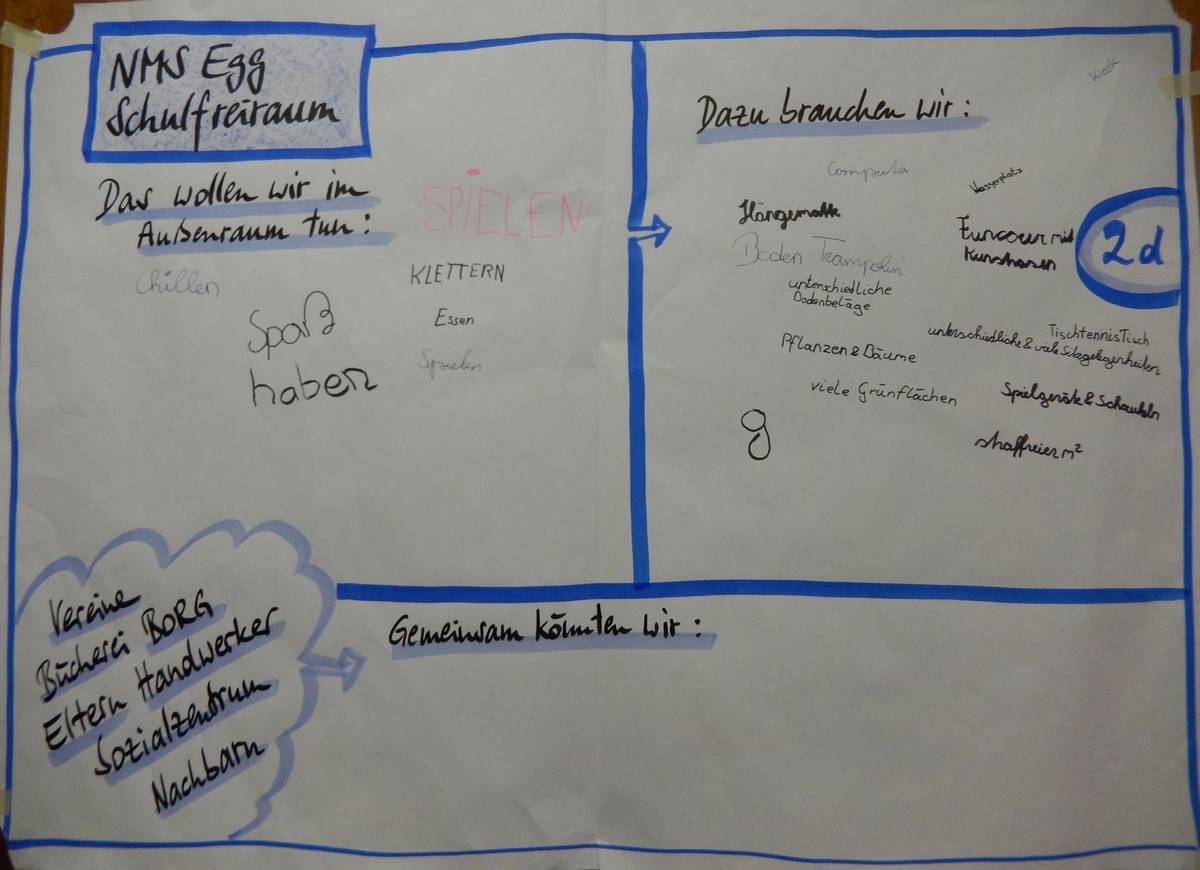 NMS Egg
Schulfreiraum
Das wollen wir im
Außenraum tun:
SPIELEN
Chillen
KLETTERN
Spaß
haben
Essen
Spielen
Kiosk
Dazu brauchen wir:
Computer
Wasserplatz
Hängematte
Boden Trampolin
unterschiedliche
Bodenbeläge
mit
2d
Pflanzen & Bäume
TischtennisTisch
unterschiedliche & viele Sitzgelegenheiten
viele Grünflächen
Spielgeräte & Schaukeln
g
m²
Vereine
Bücherei BORG
Eltern Handwerker
Sozialzentrum
Nachbarn
Gemeinsam könnten wir: